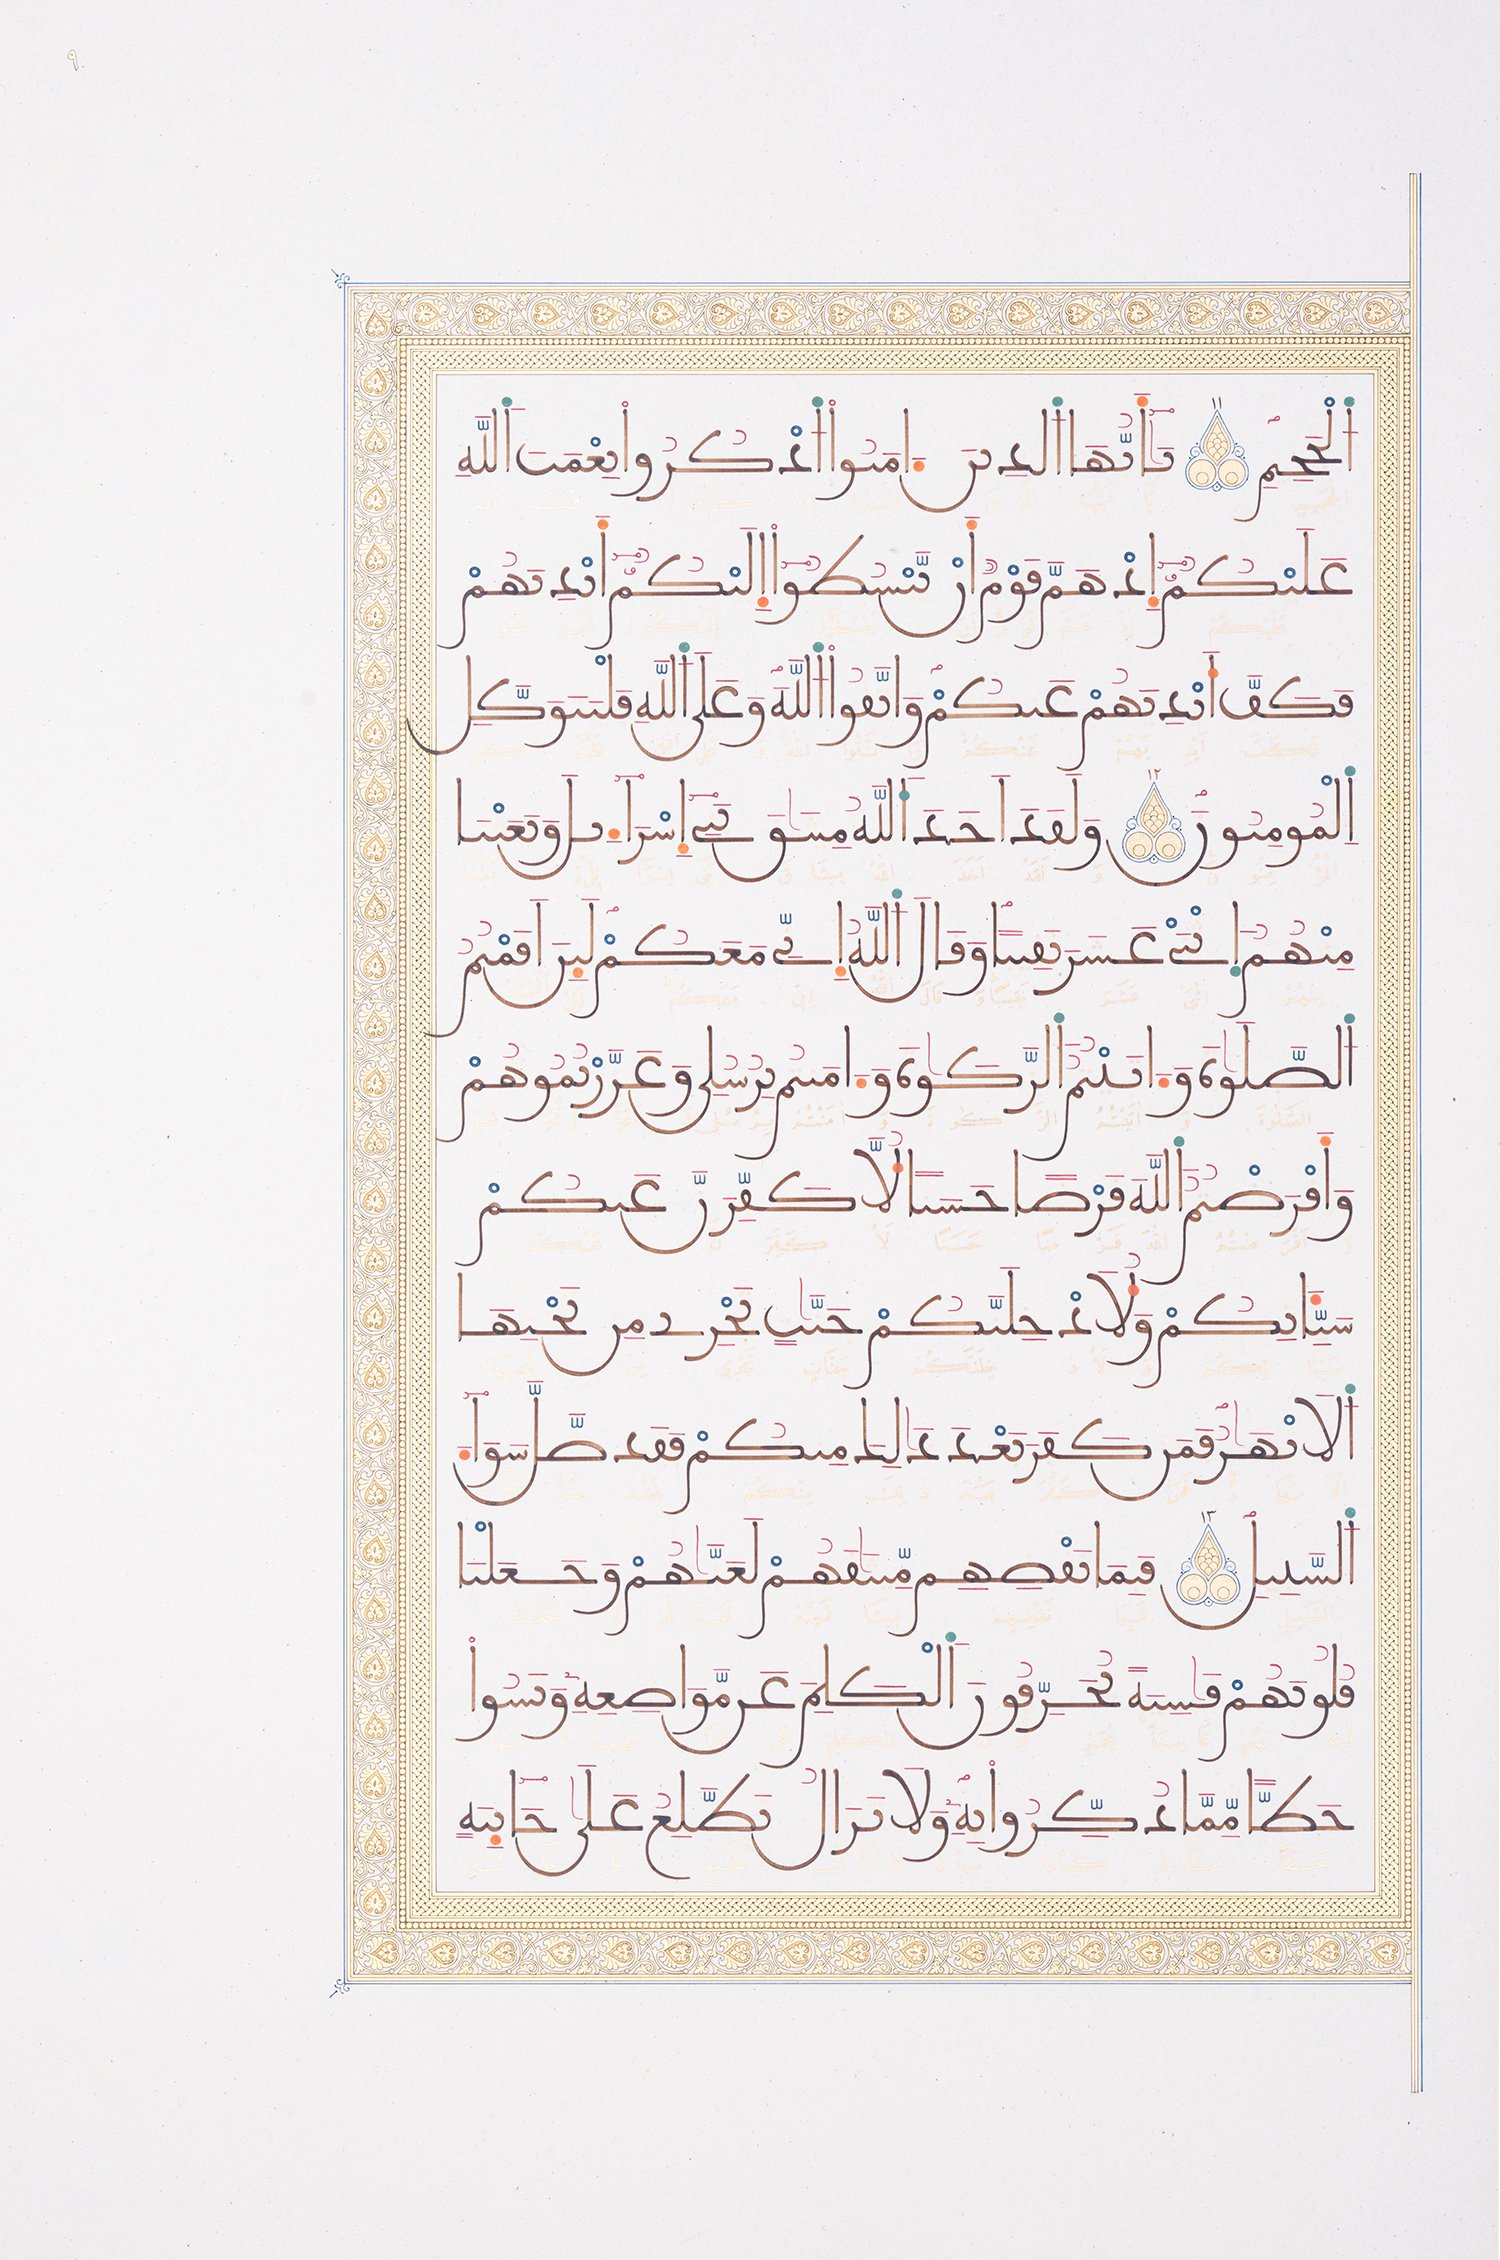 ٩
اَلْجَحِيمِ ١١ يَٰٓأَيُّهَا اَلذِينَ ءَامَنُوا اُذْكُرُوا نِعْمَتَ اَللَّهِ
عَلَيْكُمُۥٓ إِذْ هَمَّ قَوْمٌ أَنْ يَّبْسُطُوٓا إِلَيْكُمُۥٓ أَيْدِيَهُمْ
فَكَفَّ أَيْدِيَهُمْ عَنكُمْ وَاتَّقُوا اُللَّهَ وَعَلَى اَللَّهِ فَلْيَتَوَكَّلِ
اِلْمُومِنُونَ ١٢ وَلَقَدَ اَخَذَ اَللَّهُ مِيثَٰقَ بَنِيٓ إِسْرَآءِيلَ وَبَعَثْنَا
مِنْهُمُ اِثْنَيْ عَشَرَ نَقِيبًا وَقَالَ اَللَّهُ إِنِّي مَعَكُمْ لَئِنَ اَقَمْتُمُ
اُلصَّلَوٰةَ وَءَاتَيْتُمُ اُلزَّكَوٰةَ وَءَامَنتُم بِرُسُلِي وَعَزَّرْتُمُوهُمْ
وَأَقْرَضْتُمُ اُللَّهَ قَرْضًا حَسَنًا لَّأُكَفِّرَنَّ عَنكُمْ
سَيِّـَٔاتِكُمْ وَلَأُدْخِلَنَّكُمْ جَنَّٰتٍ تَجْرِي مِن تَحْتِهَا
اَلَانْهَٰرُ فَمَن كَفَرَ بَعْدَ ذَٰلِكَ مِنكُمْ فَقَد ضَّلَّ سَوَآءَ
اَلسَّبِيلِ ١٣ فَبِمَا نَقْضِهِم مِّيثَٰقَهُمْ لَعَنَّٰهُمْ وَجَعَلْنَا
قُلُوبَهُمْ قَٰسِيَةً يُحَرِّفُونَ اَلْكَلِمَ عَن مَّوَاضِعِهِۦ وَنَسُوا
حَظًّا مِّمَّا ذُكِّرُوا بِهِۦ وَلَا تَزَالُ تَطَّلِعُ عَلَىٰ خَآئِنَةٍ